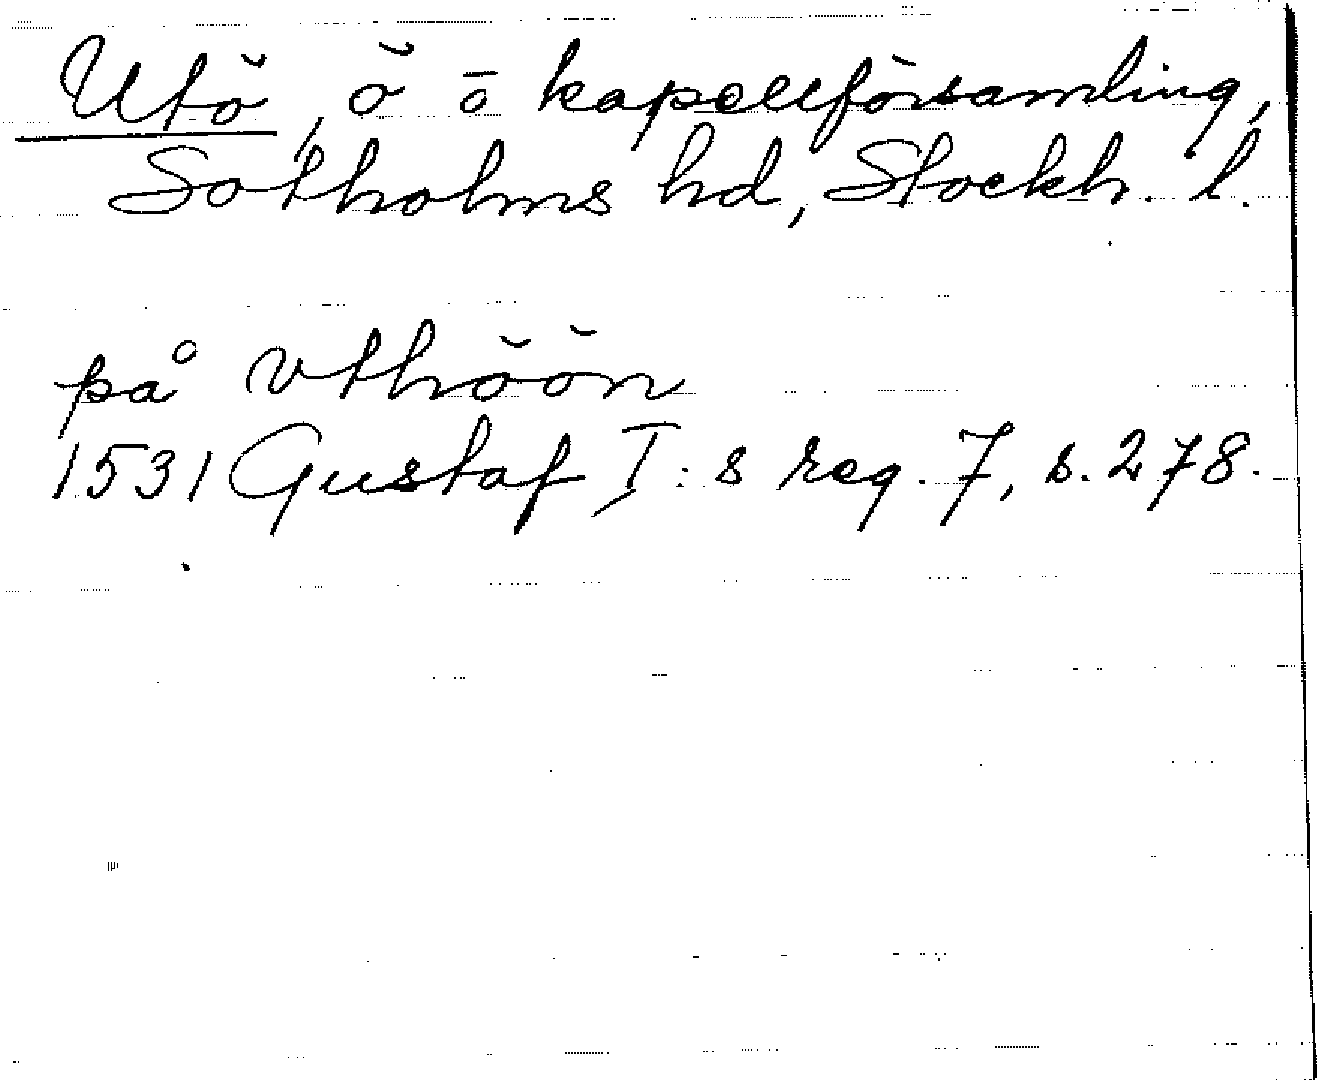 Utö, ö o kapellförsamling,
Sotholms hd, Stockh. l.
på vthöön
1531 Gustaf I:s reg. 7, s. 278.